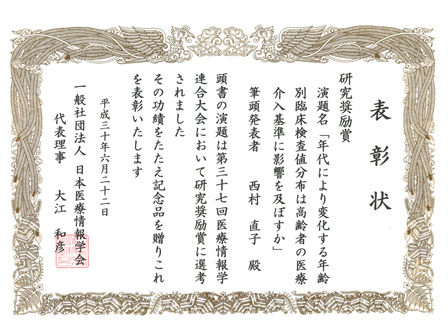 表彰状
研究奨励賞
演題名「年代により変化する年齢
別臨床検査値分布は高齢者の医療
介入基準に影響を及ぼすか」
筆頭発表者 西村 直子 殿
頭書の演題は第三十七回医療情報学
連合大会において研究奨励賞に選考
されました
その功績をたたえ記念品を贈りこれ
を表彰いたします
平成三十年六月二十二日
一般社団法人 日本医療情報学会
代表理事 大江 和彦